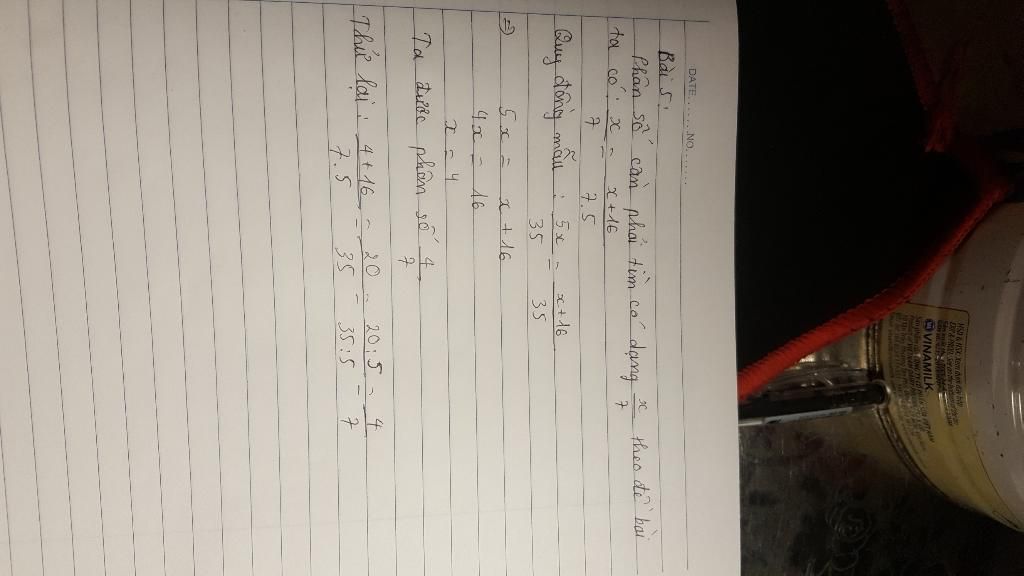 DATE.......NO.......
Bài 5:
Phân số cần phải tìm có dạng x/7 theo đề bài
ta có: x/7 = x+16/7.5
Quy đồng mẫu: 5x/35 = x+16/35
⇒ 5x = x + 16
4x = 16
x = 4
Ta được phân số 4/7
Thử lại: 4+16/7.5 = 20/35 = 20:5/35:5 = 4/7
VINAMILK